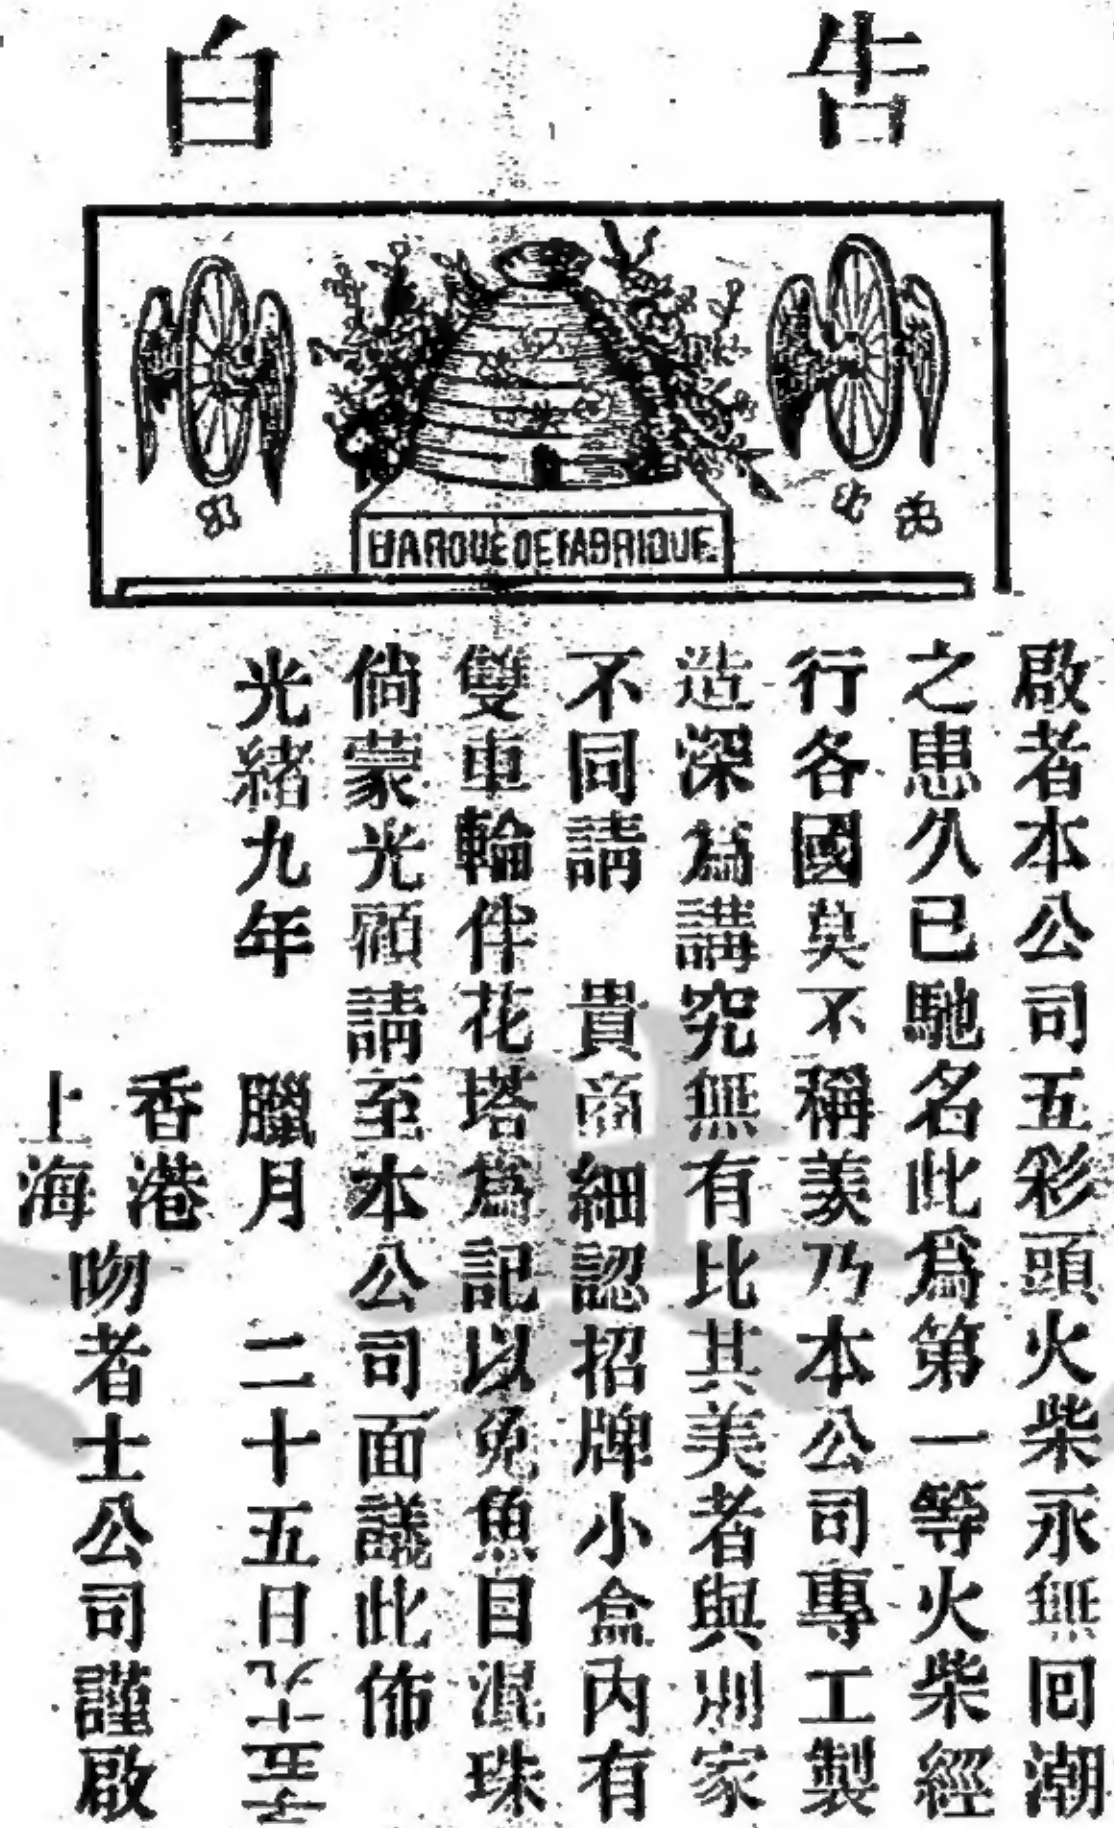 告白
MARQUE DE FABRIQUE.
啟者本公司五彩頭火柴永無回潮
之患久已馳名此爲第一等火柴經
行各國莫不稱羨乃本公司專工製
造深為講究無有比其美者與別家
不同請　貴商細認招牌小盒内有
雙車輪伴花塔為記以免魚目混珠
倘蒙光顧請至本公司面議此佈
光緒九年　臘月　二十五日九十五字
香港
上海
吻者士公司謹啟